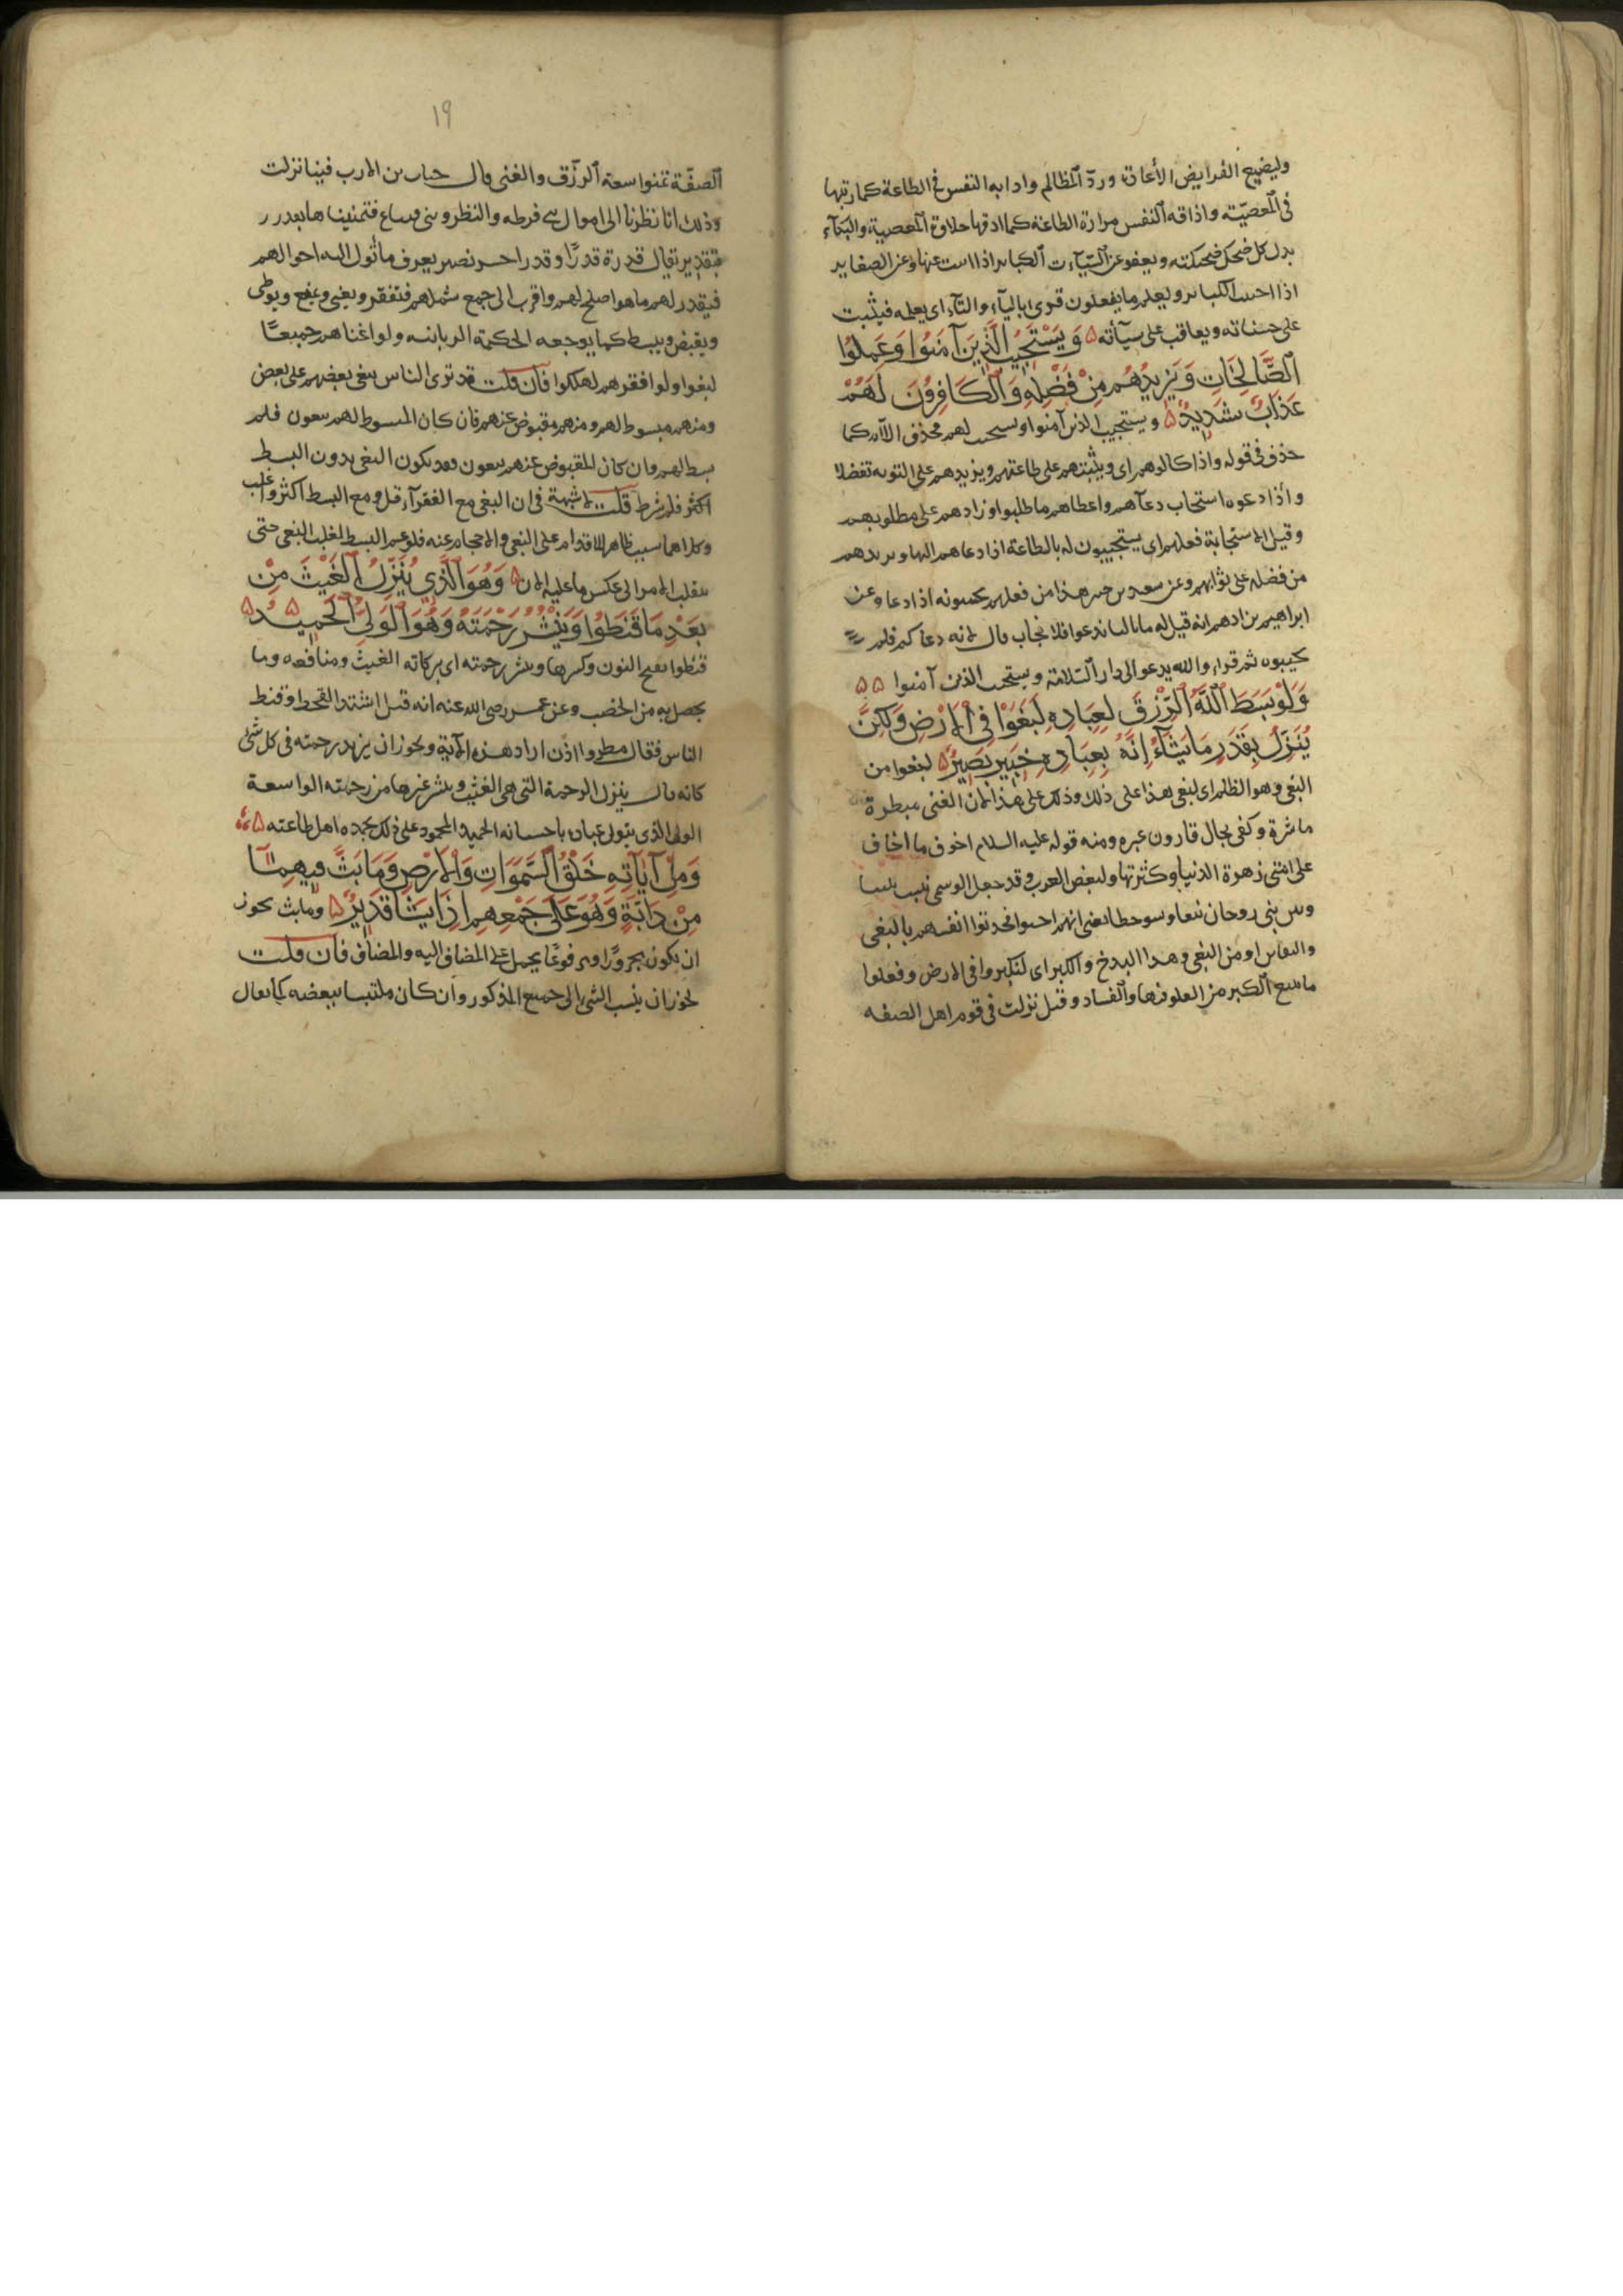 وليضيع الفرايض الأعادة وردّ المظالم واذابه النفس في الطاعة كما ربتها
في المعصيّة واذاقه النفس مرارة الطاعة كما اذقها حلاوة المعصية والبكآء
بدل كل ضحك ضحكته ويعفو عن السيّآت الكبائر اذا است عنها وعن الصغاير
اذا احسب الكبائر ويعلم ما يفعلون قرى باليآء والتآء اى يعلمه فيثبت
على حسناته ويعاقب على سيآته وَيَسْتَجِيبُ الَّذِينَ آمَنُوا وَعَمِلُوا
الصَّالِحَاتِ وَيَزِيدُهُم مِنْ فَضْلِهِ وَالْكَافِرُونَ لَهُمْ
عَذَابٌ شَدِيدٌ ۵ ويستجيب الذين آمنوا ويستجيب لهم فحذف اللام كما
حذف في قوله واذا كالوهم اى ويثبتهم على طاعتهم ويزيدهم على التوبه تفضلا
واذا دعوه استجاب دعآهم واعطاهم ما طلبوا وزادهم على مطلوبهم
وقيل الاستجابة فعلهم اى يستجيبون له بالطاعة اذا دعاهم اليها ويزيدهم
من فضله على ثوابهم وعن سعيد بن جبير هذا من فعلهم يجيبونه اذا دعا وعن
ابراهيم بن ادهم انه قيل له ما بالنا ندعوا فلا نجاب قال لانه دعاكم فلم
تجيبوه ثم قراء والله يدعو الى دار السّلامة ويستجيب الذين آمنوا ۵ ۵
وَلَوْ بَسَطَ اللَّهُ الرِّزْقَ لِعِبَادِهِ لَبَغَوْا فِي الْاَرْضِ وَلَكِنَّ
يُنَزِّلُ بِقَدَرٍ مَا يَشَآءُ إِنَّهُ بِعِبَادِهِ خَبِيرٌ بَصِيرٌ ۵ لبغوا من
البغى وهو الظلم اى لبغى هذا على ذلك وذلك على هذا لان الغنى مبطرة
ماشرة وكفى بحال قارون عبره ومنه قوله عليه السلام اخوف ما اخاف
على امتى زهرة الدنيا وكثرتها ولبعض العرب وقد جعل الوسمى ينبت بيننا
وبين بنى رومان نبعا وشوحطا يعنى انهم احيوا فحدثوا انفسهم بالبغى
والتفاتن او من البغى وهذا البذخ والكبر اى لتكبروا فى الارض وفعلوا
ما يتبع الكبر من العلو فيها والفساد وقيل نزلت فى قوم اهل الصفه
١٩
الصفّة تمنوا سعة الرزق والغنى قال خباب بن الارت فينا نزلت
وذلك انا نظرنا الى اموال بني قريظه والنظير وبنى قينقاع فتمنيناها بقدر
بتقدير يقال قدره قدرًا وقدرا خبير بصير يعرف ما تؤل اليه احوالهم
فيقدر لهم ما هو اصلح لهم واقرب الى جمع شملهم فيفقر ويغنى ويمنع ويعطى
ويقبض ويبسط كما يوجبه الحكمة الربانيه ولو اغناهم جميعًا
لبغوا ولو افقرهم لهلكوا فان قلت قد ترى الناس يبغى بعضهم على بعض
ومنهم مبسوط لهم ومنهم مقبوض عنهم فان كان المبسوط لهم يبغون فلم
بسط لهم وان كان المقبوض عنهم يبغون فقد يكون البغى بدون البسط
اكثر فلم شرط قلت لا شبهة فى ان البغى مع الفقر آ قل ومع البسط اكثر واغلب
وكلاهما سبب ظاهر للاقدام على البغى والاحجام عنه فلو عم البسط لغلب البغى حتى
ينقلب الامر الى عكس ما عليه الان ۵ وَهُوَ الَّذِي يُنَزِّلُ الْغَيْثَ مِنْ
بَعْدِ مَا قَنَطُوا وَيَنْشُرُ رَحْمَتَهُ وَهُوَ الْوَلِىُّ الْحَمِيدُ ۵
قنطوا بفتح النون وكسرها وينشر رحمته اى بركاته الغيث ومنافعه وما
يحصل به من الخصب وعن عمر رضى الله عنه انه قيل اشتد القحط وقنط
الناس فقال مطروا اذن اراد هذه الآية ويجوز ان يريد رحمته فى كل شئ
كانه قال ينزل الرحمة التى هى الغيث وينشر غيرها من رحمته الواسعة
الولى الذى يتولى عباده باحسانه الحميد المحمود على ذلك يحمده اهل طاعته ۵
وَمِنْ آيَاتِهِ خَلْقُ السَّمَوَاتِ وَالْاَرْضِ وَمَا بَثَّ فِيهِمَا
مِنْ دَابَّةٍ وَهُوَ عَلَى جَمْعِهِمْ اِذَا يَشَا قَدِيرٌ ۵ وما بث يجوز
ان يكون مجرورًا ومرفوعًا يحمل على المضاف اليه والمضاف فان قلت
لم جوز ان ينسب الشئ الى جميع المذكور وان كان ملتبسا ببعضه كما يقال